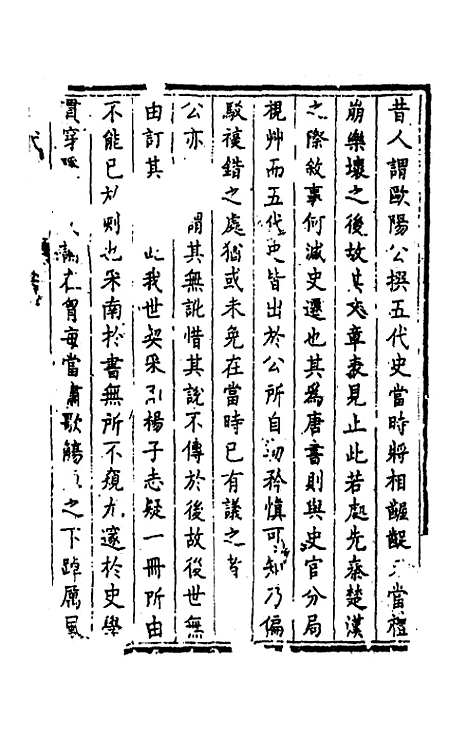 昔人謂歐陽公撰五代史當時將相齷齪又當禮
崩樂壞之後故其文章表見止此若起先秦楚漢
之際敘事何減史遷也其為唐書則與史官分局
視艸而五代史皆出於公所自矜慎可知乃偏
駁複錯之處猶或未免在當時已有議之者
公亦謂其無訛惜其說不傳於後故後世無
由訂其此我世契采南楊子志疑一冊所由
不能已於則也采南於書無所不窺尤邃於史學
貫穿在胷每當肅歌觴之下踔厲風
代